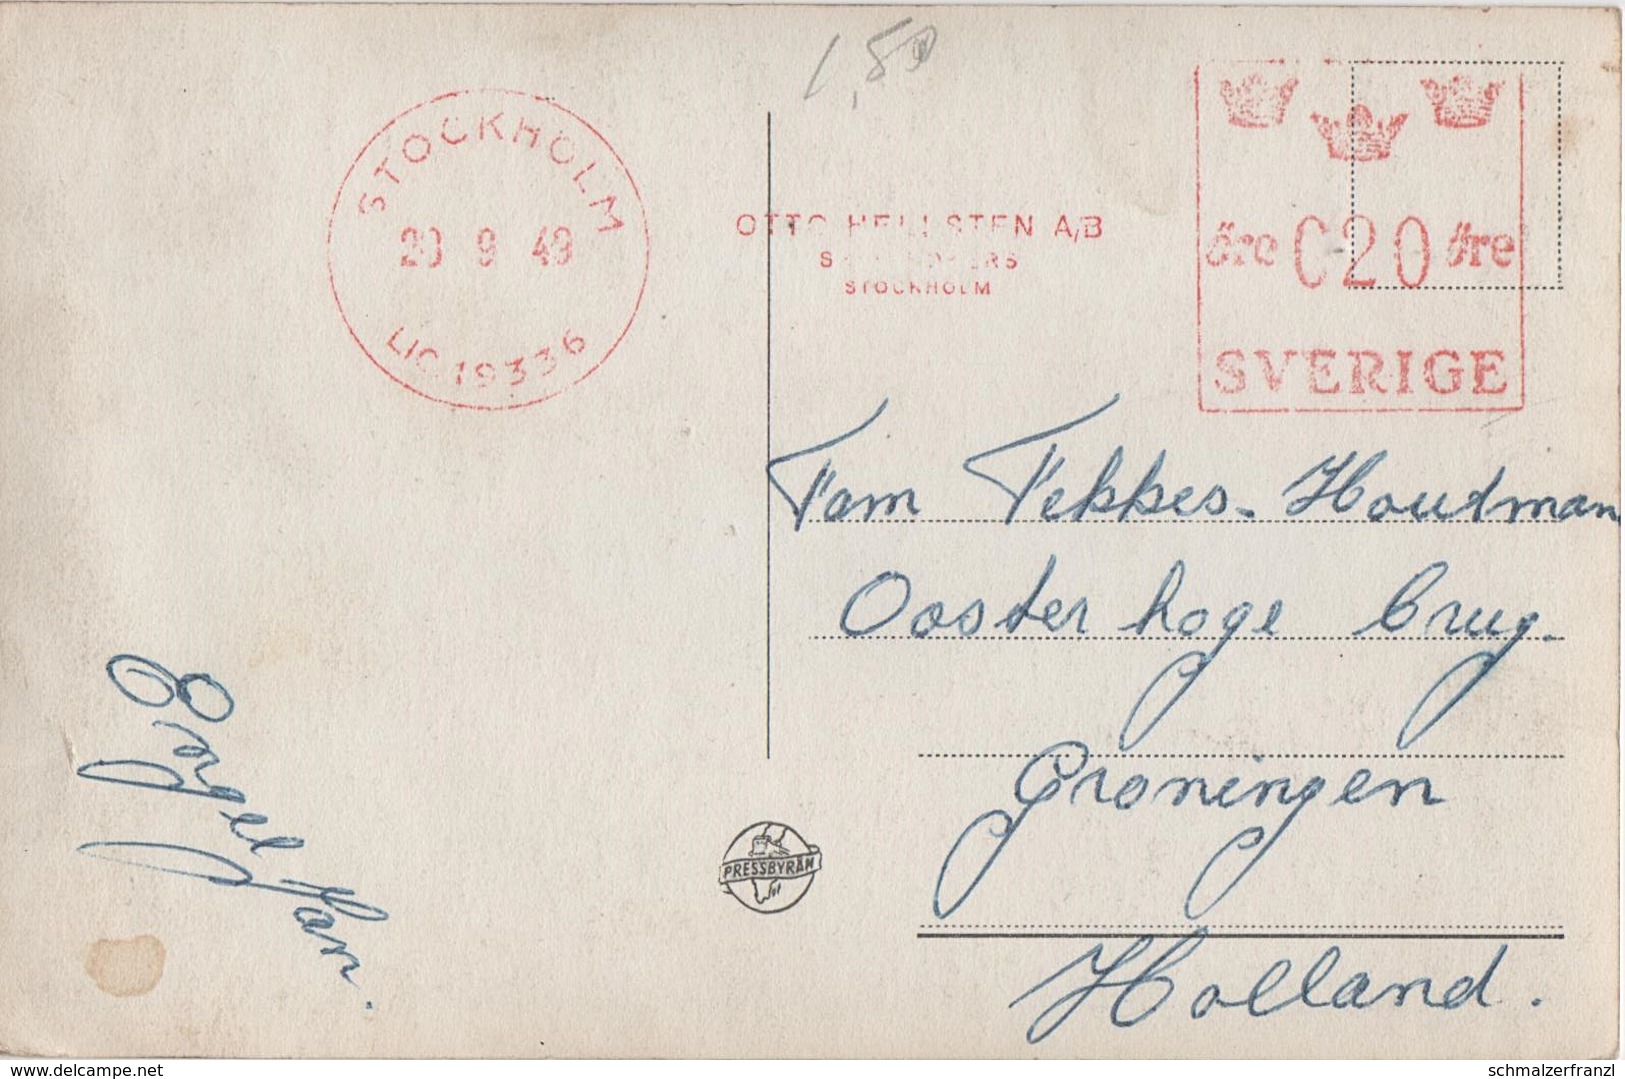 1,50
STOCKHOLM
20 9 49
LIC. 19336
OTTO HELLSTEN A/B
STOCKHOLM
öre 020 öre
SVERIGE
Fam Fekkes-Houtman
Oosterhoge brug.
Groningen
Holland.
Engel Jan.
PRESSBYRÅN
www.delcampe.net
schmalzerfranzl